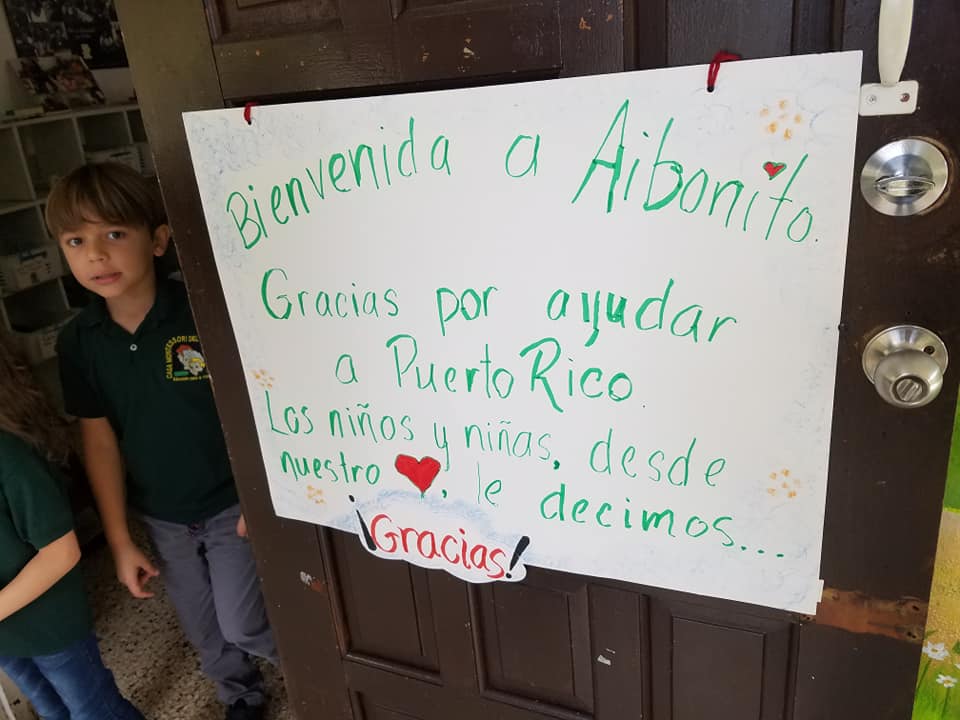 Bienvenida a Aibonito.
Gracias por ayudar
a Puerto Rico.
Los niños y niñas, desde
nuestro ♥, le decimos...
¡Gracias!
CASA MONTESSORI DEL